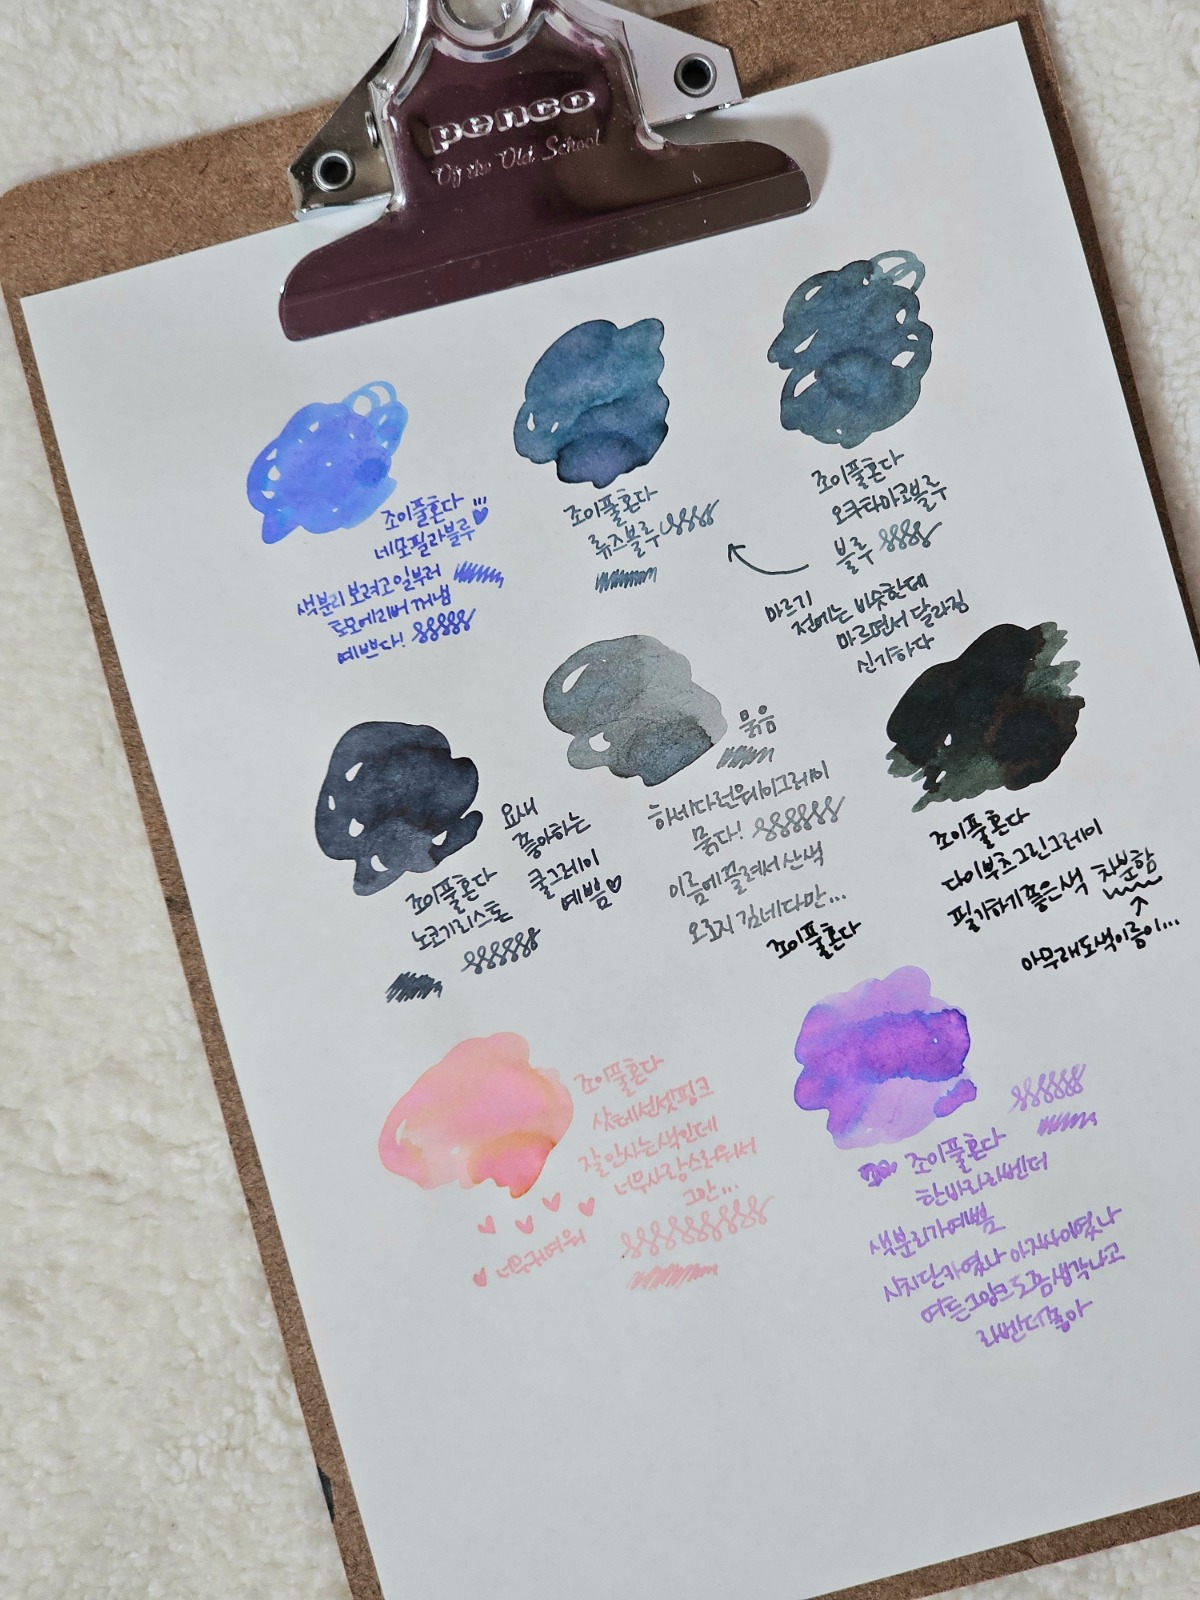 penco
Of the Old School
조이풀혼다
네모필라블루
색분리 보려고 일부러
토모에리버 꺼냄
예쁘다!
조이풀혼다
류즈블루
조이풀혼다
오쿠타마코블루
블루
마르기
전에는 비슷한데
마르면서 달라짐
신기하다
요새
좋아하는
쿨그레이
예쁨
조이풀혼다
노코기리스톤
묽음
하네다런웨이그레이
묽다!
이름에 끌려서 산 색
오로지 김네다만...
조이풀혼다
조이풀혼다
다이부츠그린그레이
필기하기 좋은 색 차분함
아무래도 색이름이...
조이풀혼다
선셋핑크
잘 안사는 색인데
너무 사랑스러워서
그만...
너무 귀여워
조이풀혼다
라벤더
색분리가 예쁨
시치단카였나 아지사이였나
여튼 그 잉크도 좀 생각나고
라벤더 좋아